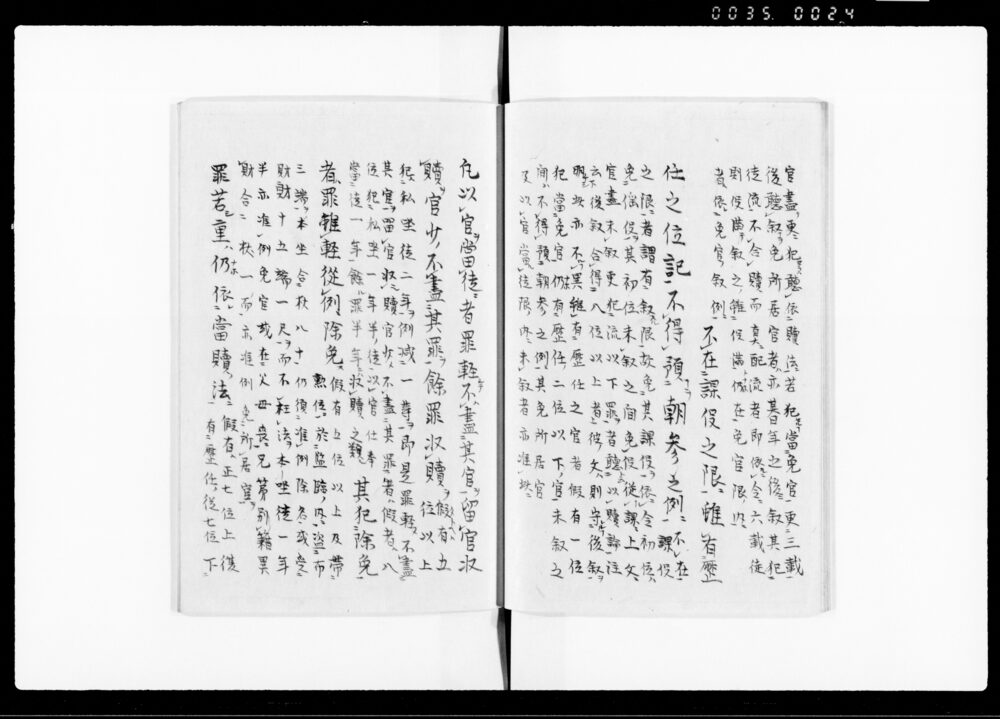 0035.0024
官盡更犯聽依贖法若犯當免官更三載
後聽敘免所居官者亦朞年之後敘其犯
徒流不合贖而真配流者即依令六載徒
則役滿敘之雖役滿仍在免官限內
者依免官敘例 不在課役之限雖有歷
仕之位記不得預朝參之例 不在課役
之限者謂有敘限故免其課役依令初位
免徭役其初位未敘之間免役從課上文
官盡未敘更犯流以下罪者聽以贖論注
云後敘合得八位以上者彼文則守後敘
明此亦不異雖有歷仕之官者假有一位
犯當免官仍有歷任二位以下官未敘之
間不得預朝參之例其免所居官
及以官當徒限內未敘者亦准此
凡以官當徒者罪輕不盡其官留官收
贖官少不盡其罪餘罪收贖 假有五位以上
犯私坐徒二年例減一等即是罪輕不盡
其官留官收贖官少不盡其罪者假有八
位犯私坐一年半徒以官仕奉
當徒一年餘罪半年收贖之類 其犯除免
者罪雖輕從例除免 假有五位以上及帶
勲位於監臨內盜布
三端本坐合杖八十仍須准例除名或受
財財十五端一尺而不枉法本坐徒一年
半亦准例免官或在父母喪兄第別籍異
財合杖一而亦准例免所居官
罪若重仍依當贖法 假有正七位上徒
有歷任從七位下